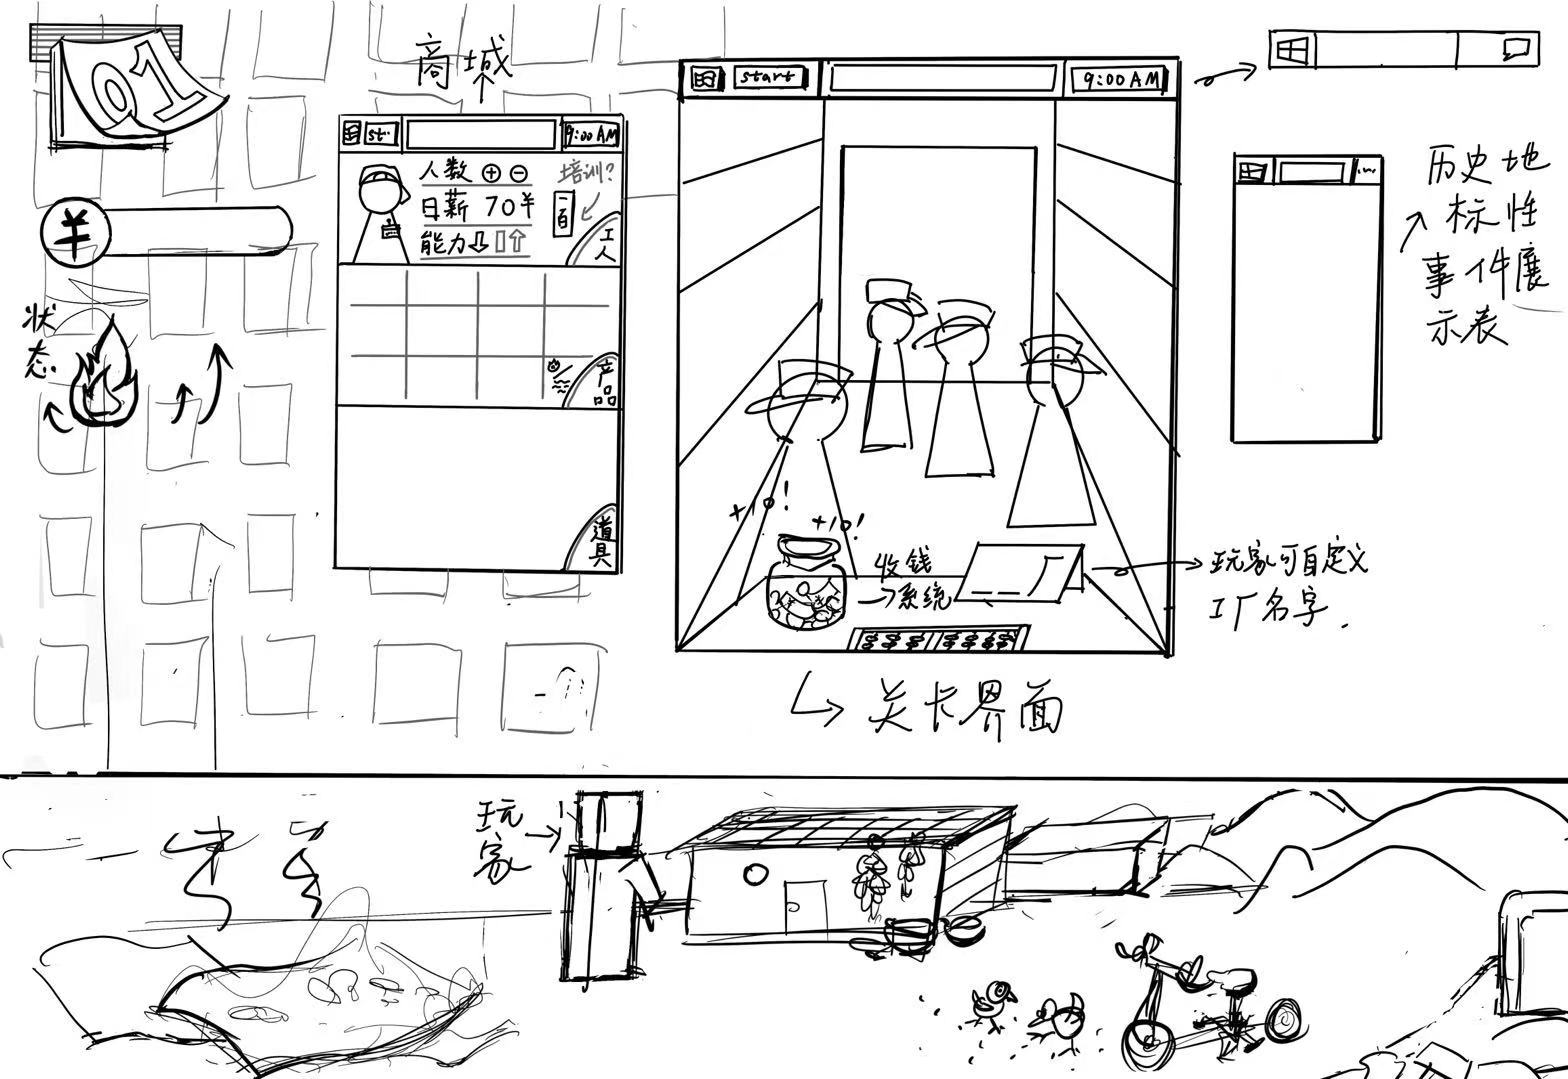 01
¥
状
态
商城
st
9:00 AM
人数 ⊕ ⊖
日薪 70¥
能力
培训?
工人
产品
道具
start
9:00 AM
+10!
+10!
收钱
系统
玩家可自定义
工厂名字.
关卡界面
历史地
标性
事件展
示表
玩
家